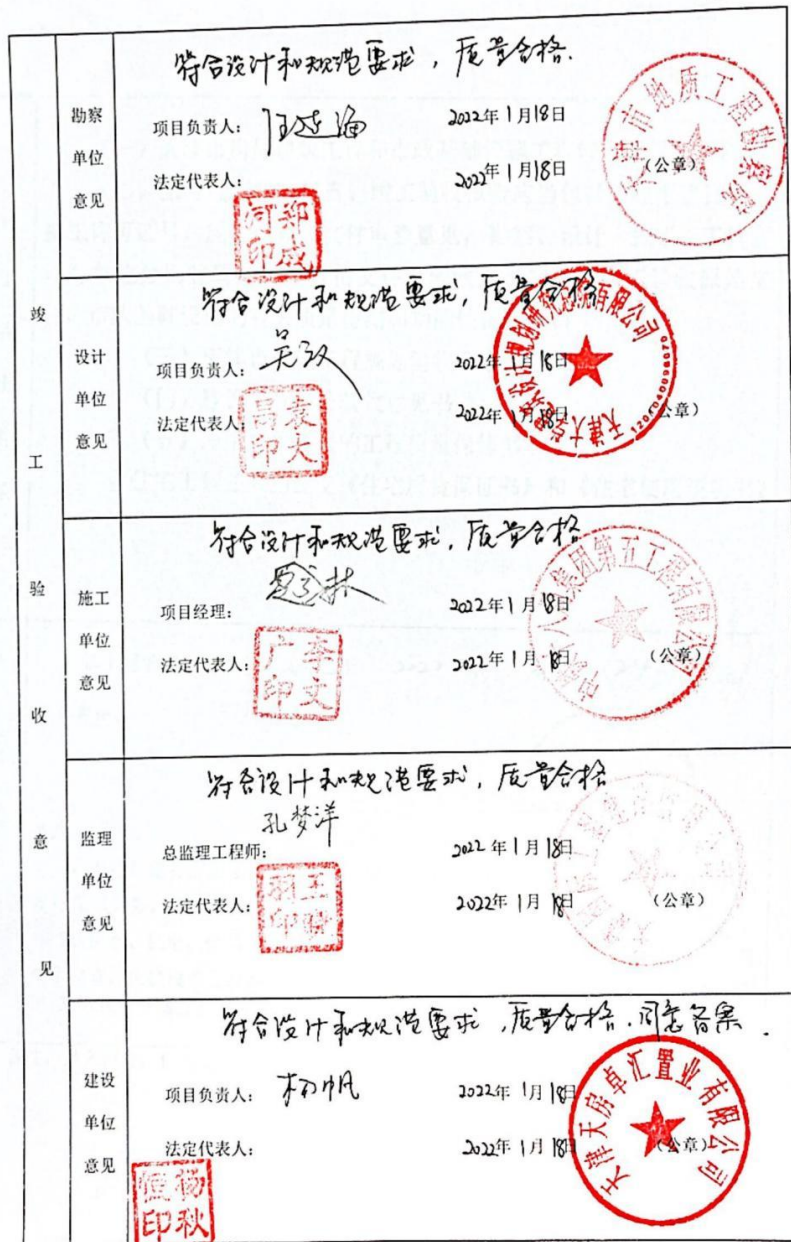 竣工验收意见
勘察单位意见
符合设计和规范要求，质量合格.
项目负责人：
2022年1月18日
法定代表人：
2022年1月18日
（公章）
市地质工程勘察院
郑成河印
设计单位意见
符合设计和规范要求，质量合格
项目负责人：
2022年1月18日
法定代表人：
2022年1月18日
（公章）
袁大昌印
施工单位意见
符合设计和规范要求，质量合格
项目经理：
2022年1月18日
法定代表人：
2022年1月18日
（公章）
集团第五工程有限公司
李文广印
监理单位意见
符合设计和规范要求，质量合格
孔梦洋
总监理工程师：
2022年1月18日
法定代表人：
2022年1月18日
（公章）
王晓羽印
建设单位意见
符合设计和规范要求，质量合格.同意备案.
项目负责人：
2022年1月18日
法定代表人：
2022年1月18日
（公章）
天津天房卓汇置业有限公司
杨秋恒印